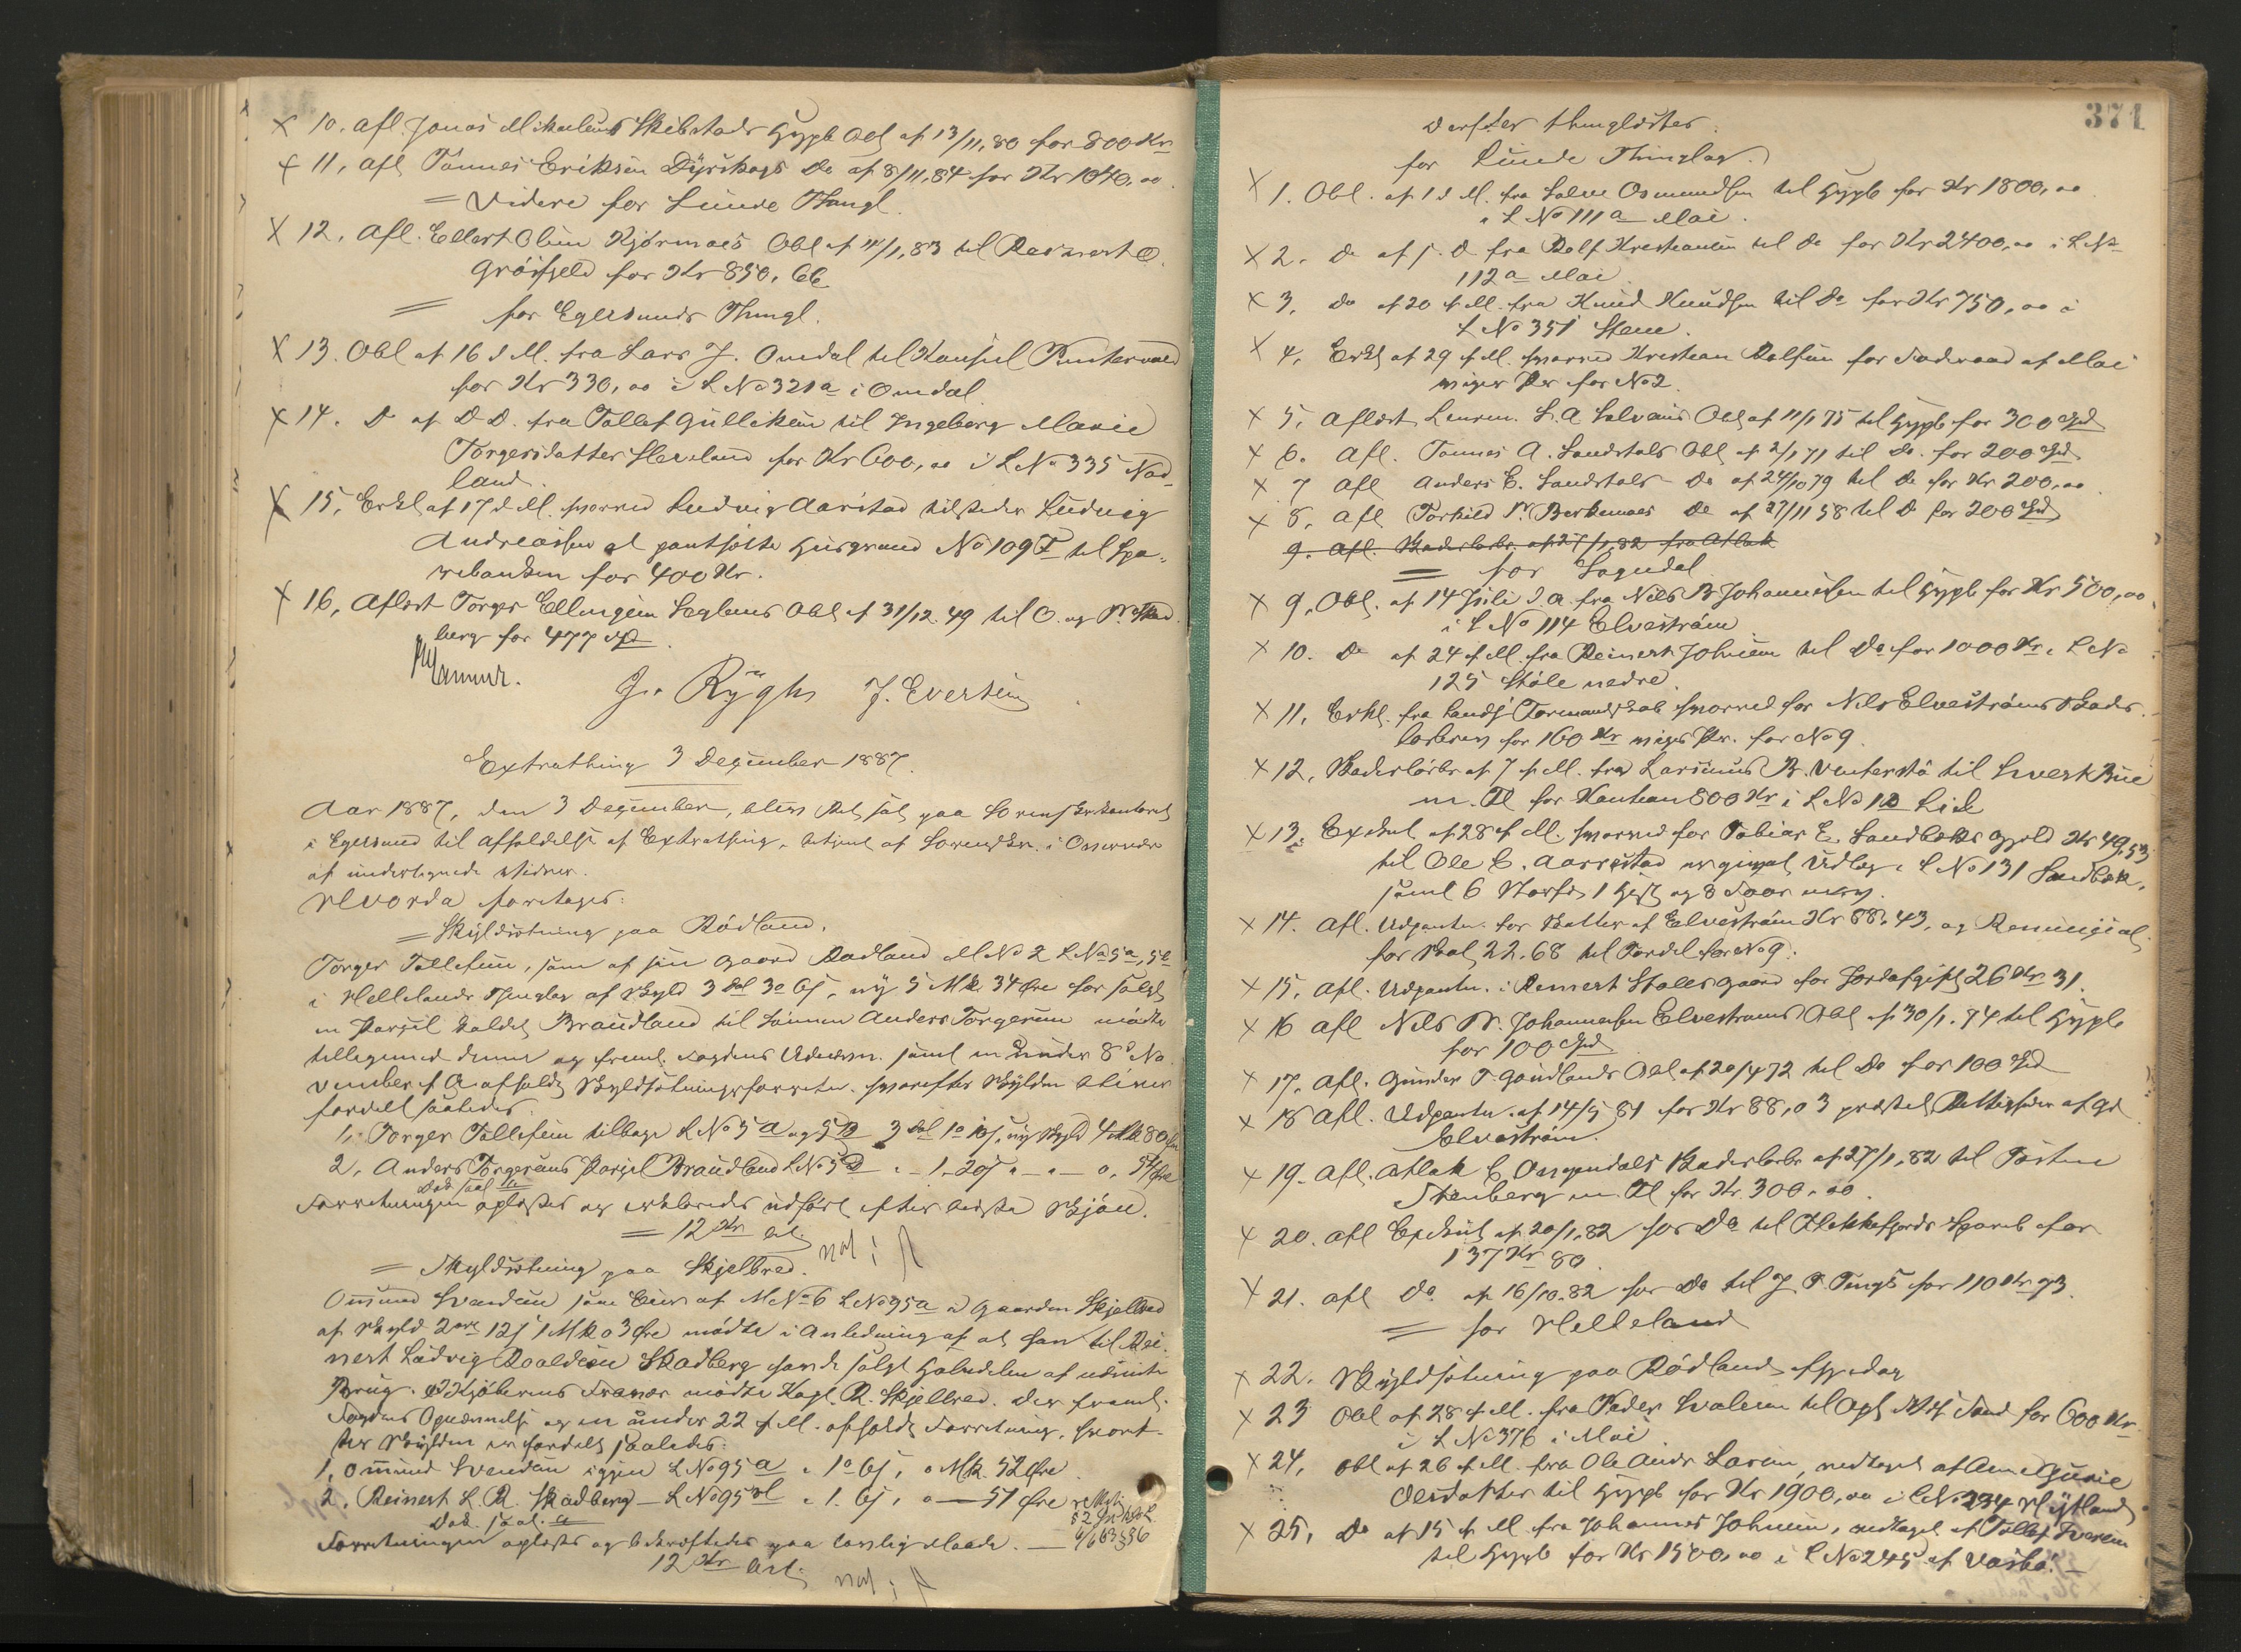 X 10. Afl. Jonas Mikalsens Skibstads Hypb Obl af 13/11,80 for 800 Kr
X 11, Afl Tønnes Eriksen Dyrskogs Do af 8/11,84 for Kr 1040,00.
= Videre for Lunde Thingl.
X 12, Afl. Ellert Olsen Kjørmoes Obl af 11/1,83 til Reinert O.
Grøsfjeld for Kr 850, 66
= for Egersunds Thingl.
X 13. Obl af 16 d M. fra Lars J. Omdal til Konsul Puntervold
for Kr 330,00 i L No 321a i Omdal.
X 14. D af D D. fra Tollef Gulliksen til Ingeborg Marie
Torgersdatter Hereland for Kr 600,00 i L No 335 Nod-
land.
X 15, Erkl af 17 d M. hvorved Ludvig Aarstad tilsteder Ludvig
Andreassen at pantsætte Husgrund No 109 F til Spa-
rebanken for 400 Kr.
X 16, Aflæst Torger Ellingsen Leglens Obl af 31/12.49 til O. og P. Skad-
berg for 477 Spd.
G. Rygh J. Evertsen
Extrathing 3 December 1887.
Aar 1887, den 3 December, blev Ret sat paa Sorenskr.kontoret
i Egersund til Afholdelse af Extrathing, betjent af Sorenskr. i Overvær
af undertegnede Vidner.
Hvorda foretages:
= Skyldsetning paa Rødland.
Torger Tollefsen, som af sin Gaard Rødland M No 2 L No 5a, 5b
i Hellelands Thinglag af Skyld 3 Dal 3 o 6 s, ny 5 Mk 34 Øre har solgt
en Parsel kaldet Braudland til Sønnen Anders Torgersen mødte
tilligemed denne og freml. Fogdens Udnævn. samt en under 8de No-
vember f A afholdt Skyldsetningsforretn. hvorefter Skylden bliver
fordelt saaledes:
1, Torger Tollefsen tilbage L No 5a og 5b 3 Dal 1 o 10 s, ny Skyld 4 Mk 80 Øre
2, Anders Torgersens Parsel Braudland L No 5d " - 1 - 20 s " - " - 0, 54 Øre
Dok saal a
Forretningen oplæstes og erklæredes udført efter bedste Skjøn.
= 12 Kr bet.
not i
= Skyldsetning paa Skjelbred.
Omund Svendsen som Eier af M No 6 L No 95a i Gaarden Skjelbred
af Skyld 2 ort 12 s 1 Mk 03 Øre mødte i Anledning af at han til Rei-
nert Ludvig Roaldsen Skadberg havde solgt Halvdelen af nævnte
Brug. I Kjøberens Fravær mødte Kast. R. Skjelbred. Der freml.
Fogdens Opnævnelse og en under 22 f M. afholdt Forretning, hvoref-
ter Skylden er fordelt saaledes:
1, Omund Svendsen igjen L No 95a " 1 o 6 s, 0 Mk. 52 Øre
2, Reinert L. R. Skadberg - L No 95d " 1. 6 s, 0 — 51 Øre
Dok. saal. a
Forretningen oplæstes og bekræftedes paa lovlig Maade. —
12 Kr bet.
not i
371
Derefter thinglæstes:
for Lunde Thinglag.
X 1. Obl. af 1 d M. fra Salve Osmundsen til Hypb for Kr 1800,00
i L No 111a Moi.
X 2. Do af s. D fra Rolf Kristiansen til Do for Kr 2400,00 i L No
112a Moi
X 3, Do af 20 f M. fra Knud Knudsen til Do for Kr 750,00 i
L No 351 Steen.
X 4, Erkl af 29 f M. hvorved Kristian Rolfsen for Føderaad af Moi
viger Pr. for No 2.
X 5, Aflæst Lensm. S. A Salvesens Obl af 11/1 75 til Hypb for 300 Spd
X 6. Afl. Tønnes A. Sandstøls Obl af 2/1 71 til Do. for 200 Spd
X 7 Afl Anders E. Sandstøls Do af 24/10 79 til Do for Kr 200,00
X 8, Afl Torkild P. Birkemoes Do af 27/11 58 til D for 200 Spd
9. Afl. Skadesløsbr. af 27/1,82 fra Atlak
= for Sogndal
X 9, Obl. af 14 Juli d. A. fra Nils B Johannessen til Hypb for Kr 500,00
i L No 114 Elvestrøm
X 10. Do af 24 f M. fra Reinert Johnsen til Do for 1000 Kr i L No
125 Støle nedre
X 11, Erkl. fra Sands Formandskab hvorved for Nils Elvestrøms Skades-
løsbrev for 160 Kr viges Pr. for No 9
X 12, Skadesløsbr af 7 f M. fra Larsinus B. Vinterstø til Sivert Bue
m. Fl for Kaution 800 Kr i L No 1 b Lid
X 13, Exekut af 28 f M. hvorved for Tobias E. Sandbæks Gjæld Kr 49,53
til Ole E. Aarrestad er gjort Udlæg i L No 131 Sandbæk,
samt 6 Storfæ, 1 Hest og 8 Faar m.m.
X 14. Afl. Udpantn. for Skatter af Elvestrøm Kr 88,43, og
for Skat 22.68 til Fordel for No 9.
X 15, Afl. Udpantn. i Reinert Støles Gaard for Jordafgift 26 Kr 31.
X 16 Afl Nils B. Johannessen Elvestrøms Obl af 30/1. 74 til Hypb
for 100 Spd
X 17, Afl. Gunder T. Gaudlands Obl af 20/4 72 til Do for 100 Spd
X 18 Afl. Udpantn. af 14/5 81 for Kr 88,03 Rettighder af Gd
Elvestrøm.
X 19. Afl. Atlak E. Skadesløsbr af 27/1,82 til Tostein
Stenberg m. Fl for Kr. 300,00.
X 20. Afl Exekut af 20/1,82 hos Do til Flekkefjords Spareb for
137 Kr 80.
X 21. Afl Do af 16/10.82 hos Do til J. P. Tengs for 110 Kr 93.
= for Helleland
X 22. Skyldsetning paa Rødland
X 23 Obl af 28 f M. fra Peder Svalesen til Opl for 600 Kr
i L No 376 i Moi
X 24, Obl af 26 f M. fra Ole Andr. Larsen, vedtaget af Ane Gurie
Olesdatter til Hypb for Kr 1900,00 i L No 234 Hytland
X 25, Do af 15 f M fra Johannes Johnsen, vedtaget af Tollef Iversen
til Hypb for Kr 1500,00 i L No 245 af Vasbø. —